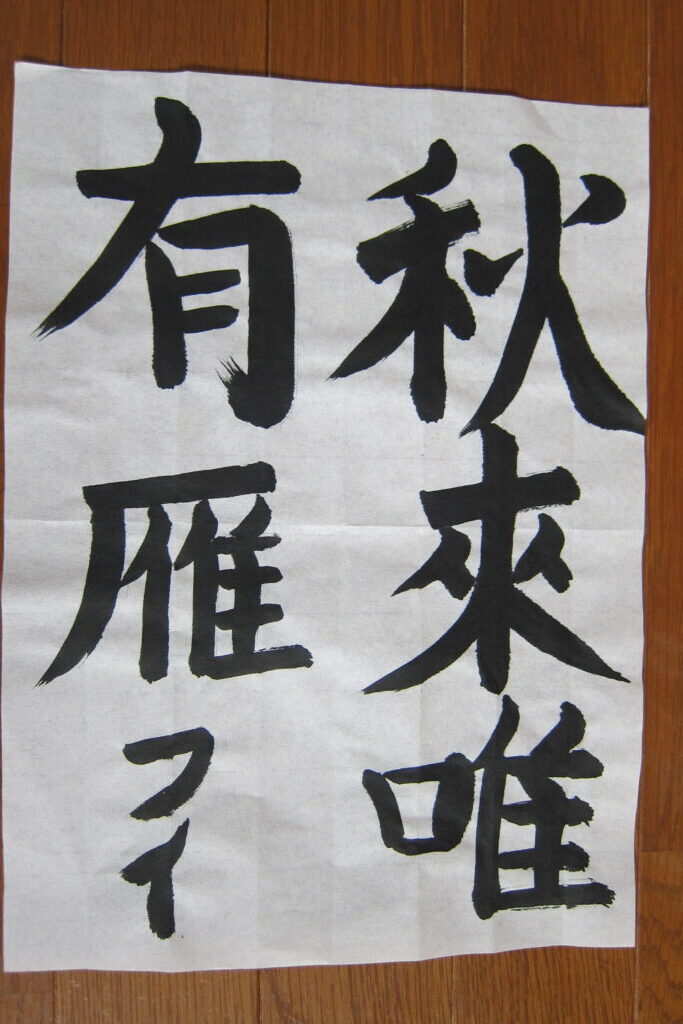 秋來唯
有雁フイ